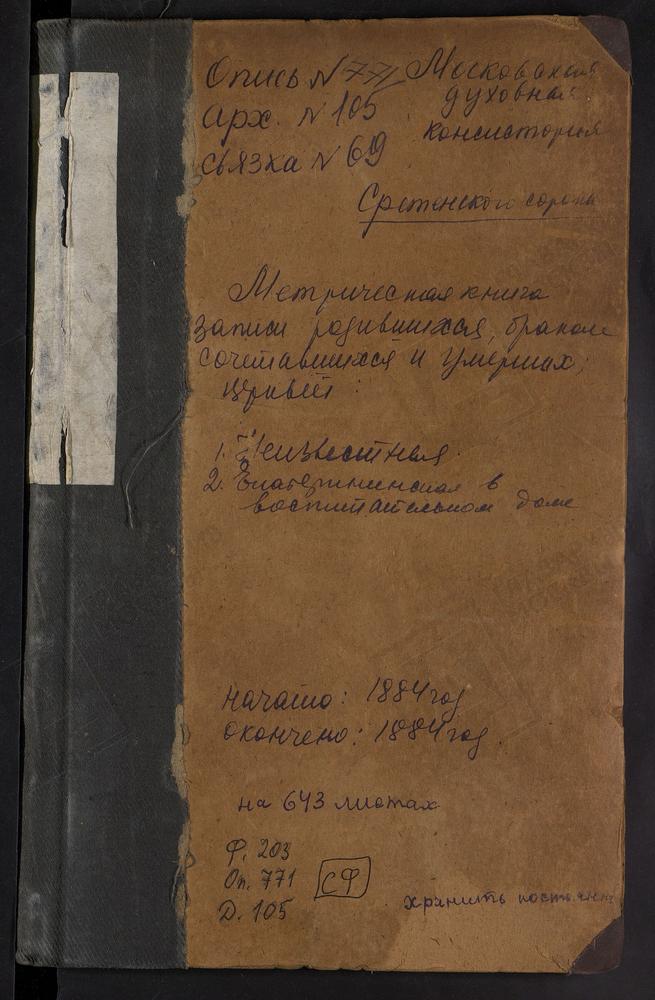 Опись № 771 Московская
духовная
консистория
Арх. № 105
Связка № 69
Сретенского сорока
Метрическая книга
записи родившихся, браком
сочетавшихся и умерших,
церквей:
1. Неизвестная
2. Екатерининская в
воспитательном доме
начато: 1884 год
окончено: 1884 год
на 643 листах
Ф. 203
Оп. 771 СФ
Д. 105
хранить постоянно